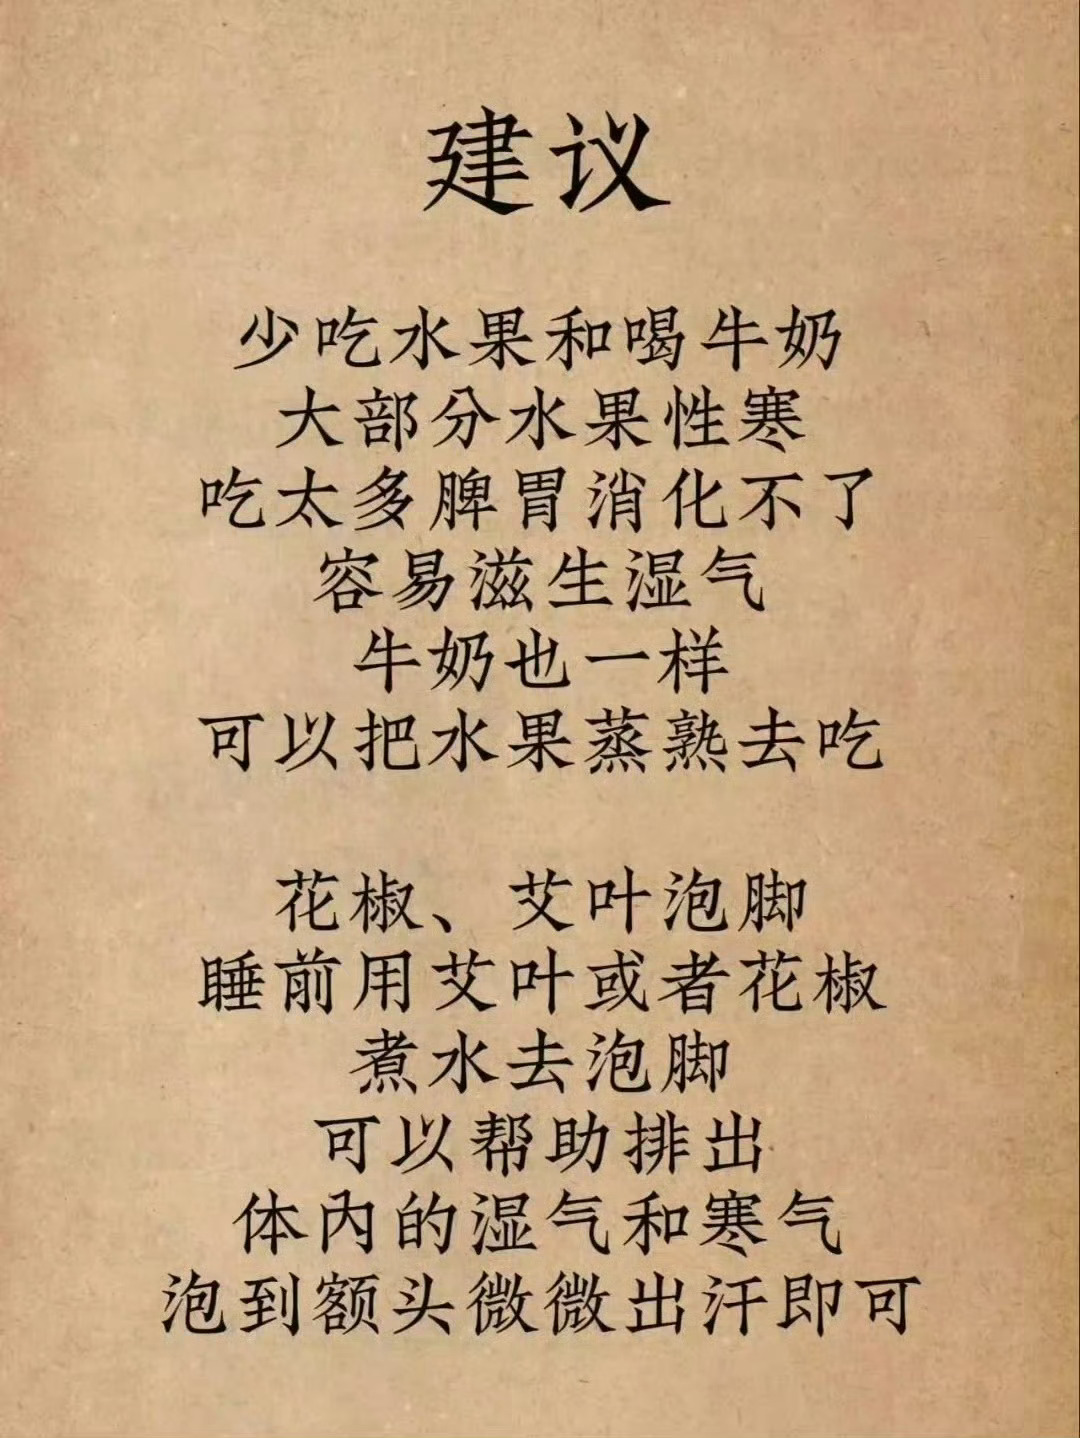 建议
少吃水果和喝牛奶
大部分水果性寒
吃太多脾胃消化不了
容易滋生湿气
牛奶也一样
可以把水果蒸熟去吃
花椒、艾叶泡脚
睡前用艾叶或者花椒
煮水去泡脚
可以帮助排出
体内的湿气和寒气
泡到额头微微出汗即可